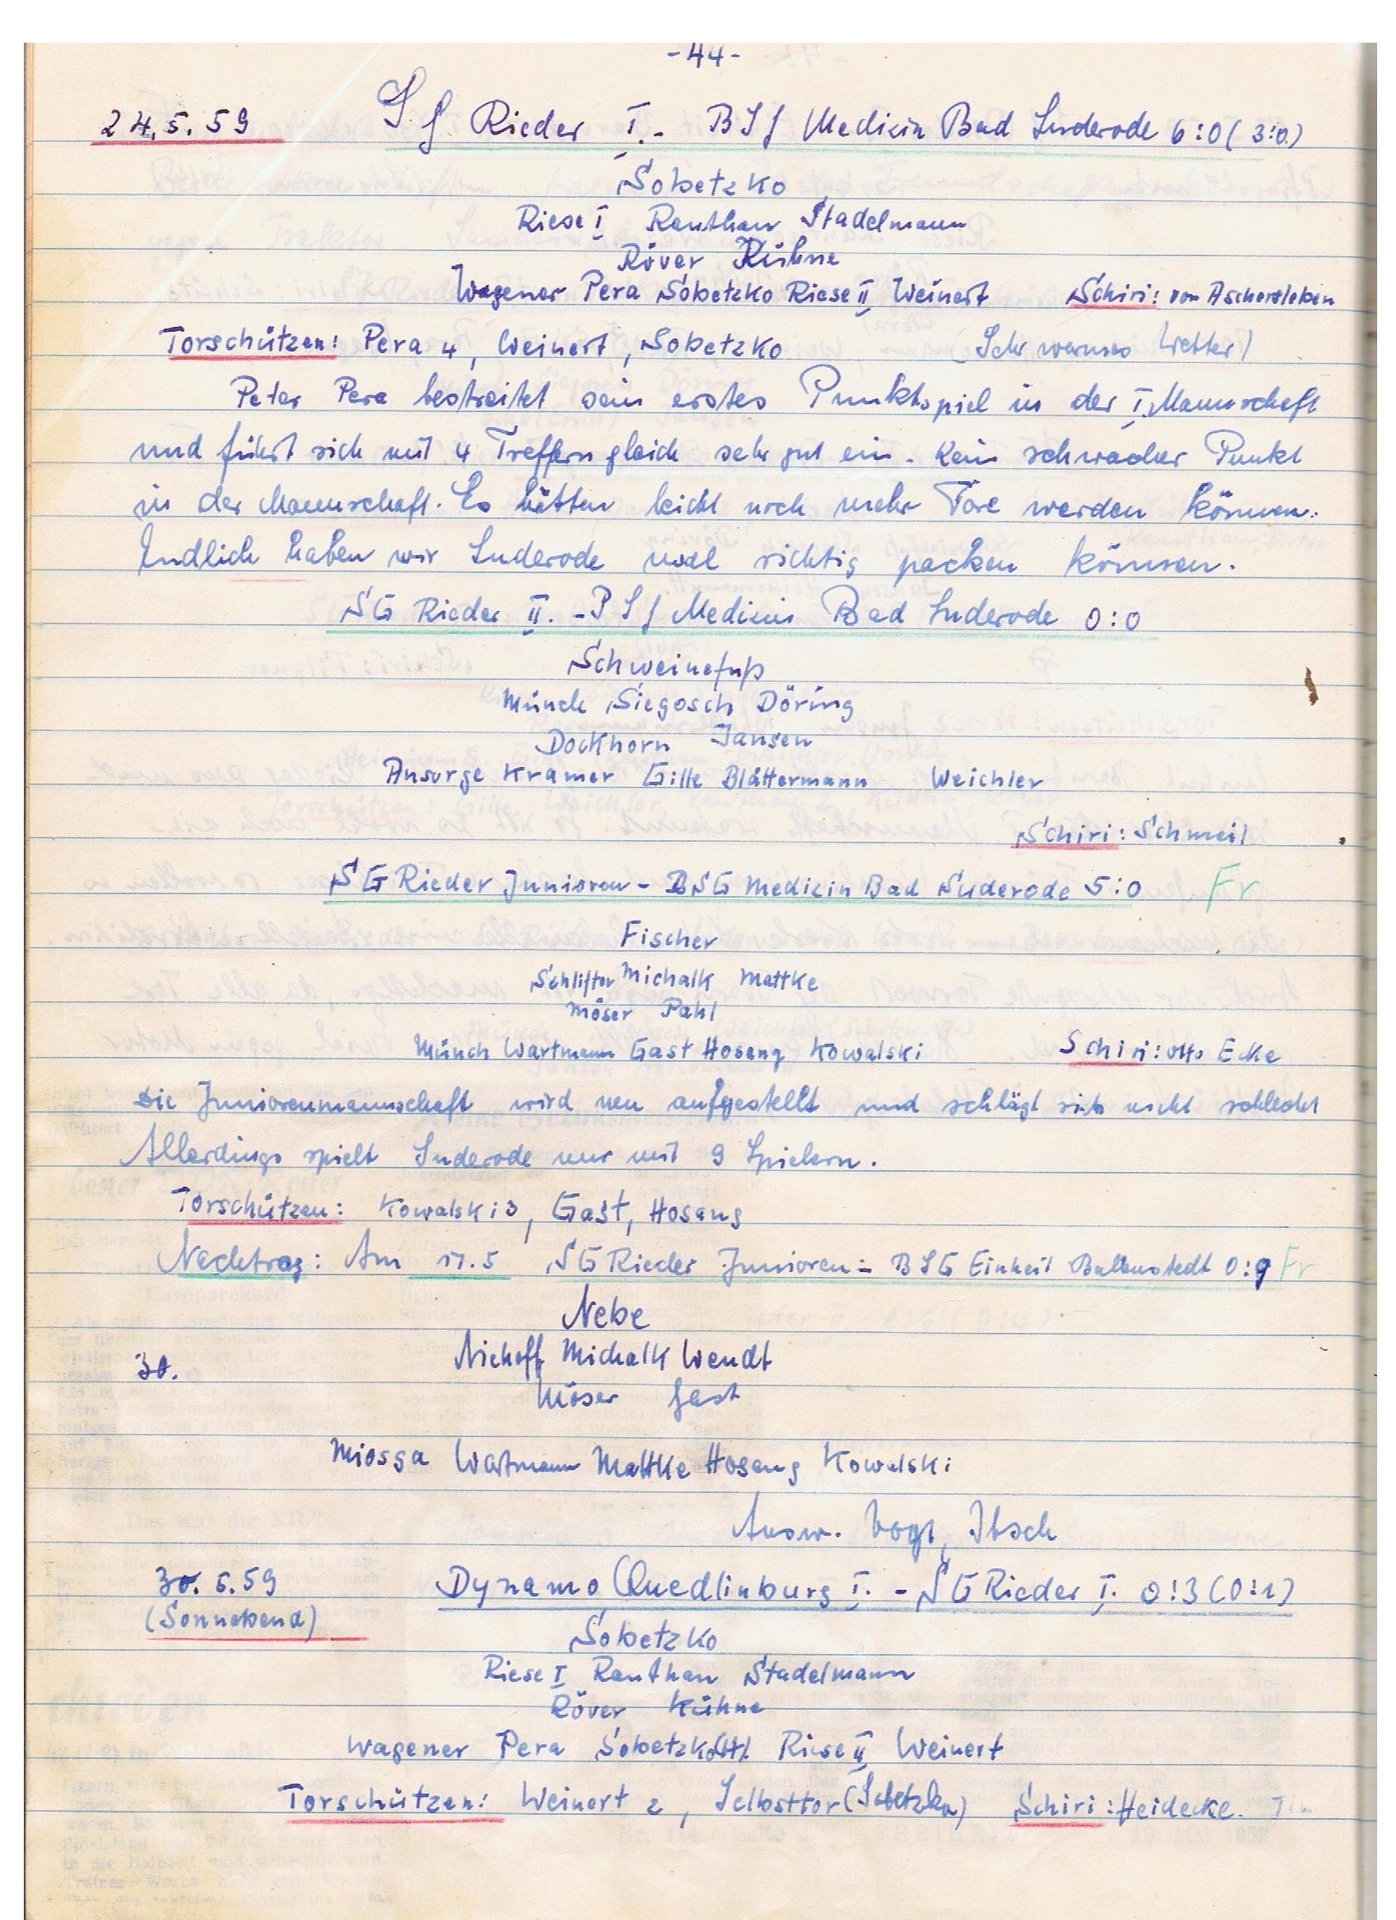 -44-
24.5.59 SG Rieder I. - BSG Medizin Bad Suderode 6:0 (3:0)
Sobetzko
Riese I Ranthan Stadelmann
Röver Kühne
Wagener Pera Sobetzko Riese II Weinert Schiri: von Aschersleben
Torschützen: Pera 4, Weinert, Sobetzko (Sehr warmes Wetter)
Peter Pera bestreitet sein erstes Punktspiel in der I. Mannschaft
und führt sich mit 4 Treffern gleich sehr gut ein. Kein schwacher Punkt
in der Mannschaft. Es hätten leicht noch mehr Tore werden können.
Endlich haben wir Suderode mal richtig packen können.
SG Rieder II. - BSG Medizin Bad Suderode 0:0
Schweinefuß
Münch Siegosch Döring
Dockhorn Jansen
Ansorge Kramer Gille Blättermann Weichler
Schiri: Schmeil
SG Rieder Junioren - BSG Medizin Bad Suderode 5:0 Fr
Fischer
Schlifter Michalk Mattke
Möser Pahl
Münch Wartmann Gast Hosang Kowalski Schiri: Otto Ecke
Die Juniorenmannschaft wird neu aufgestellt und schlägt sich nicht schlecht
Allerdings spielt Suderode nur mit 9 Spielern.
Torschützen: Kowalski 3, Gast, Hosang
Nachtrag: Am 17.5 SG Rieder Junioren - BSG Einheit Ballenstedt 0:9 Fr
Nebe
Niehoff Michalk Wendt
30.
Möser Gast
Miossga Wartmann Mattke Hosang Kowalski
Ausw. Vogt, Itsch
30.5.59 Dynamo Quedlinburg I. - SG Rieder I. 0:3 (0:1)
(Sonnabend)
Sobetzko
Riese I Ranthan Stadelmann
Röver Kühne
Wagener Pera Sobetzko Riese II Weinert
Torschützen: Weinert 2, Selbsttor (Sobetzko) Schiri: Heidecke.